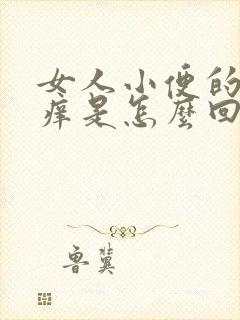 女人小便的
痒是怎麽回
鲁冀